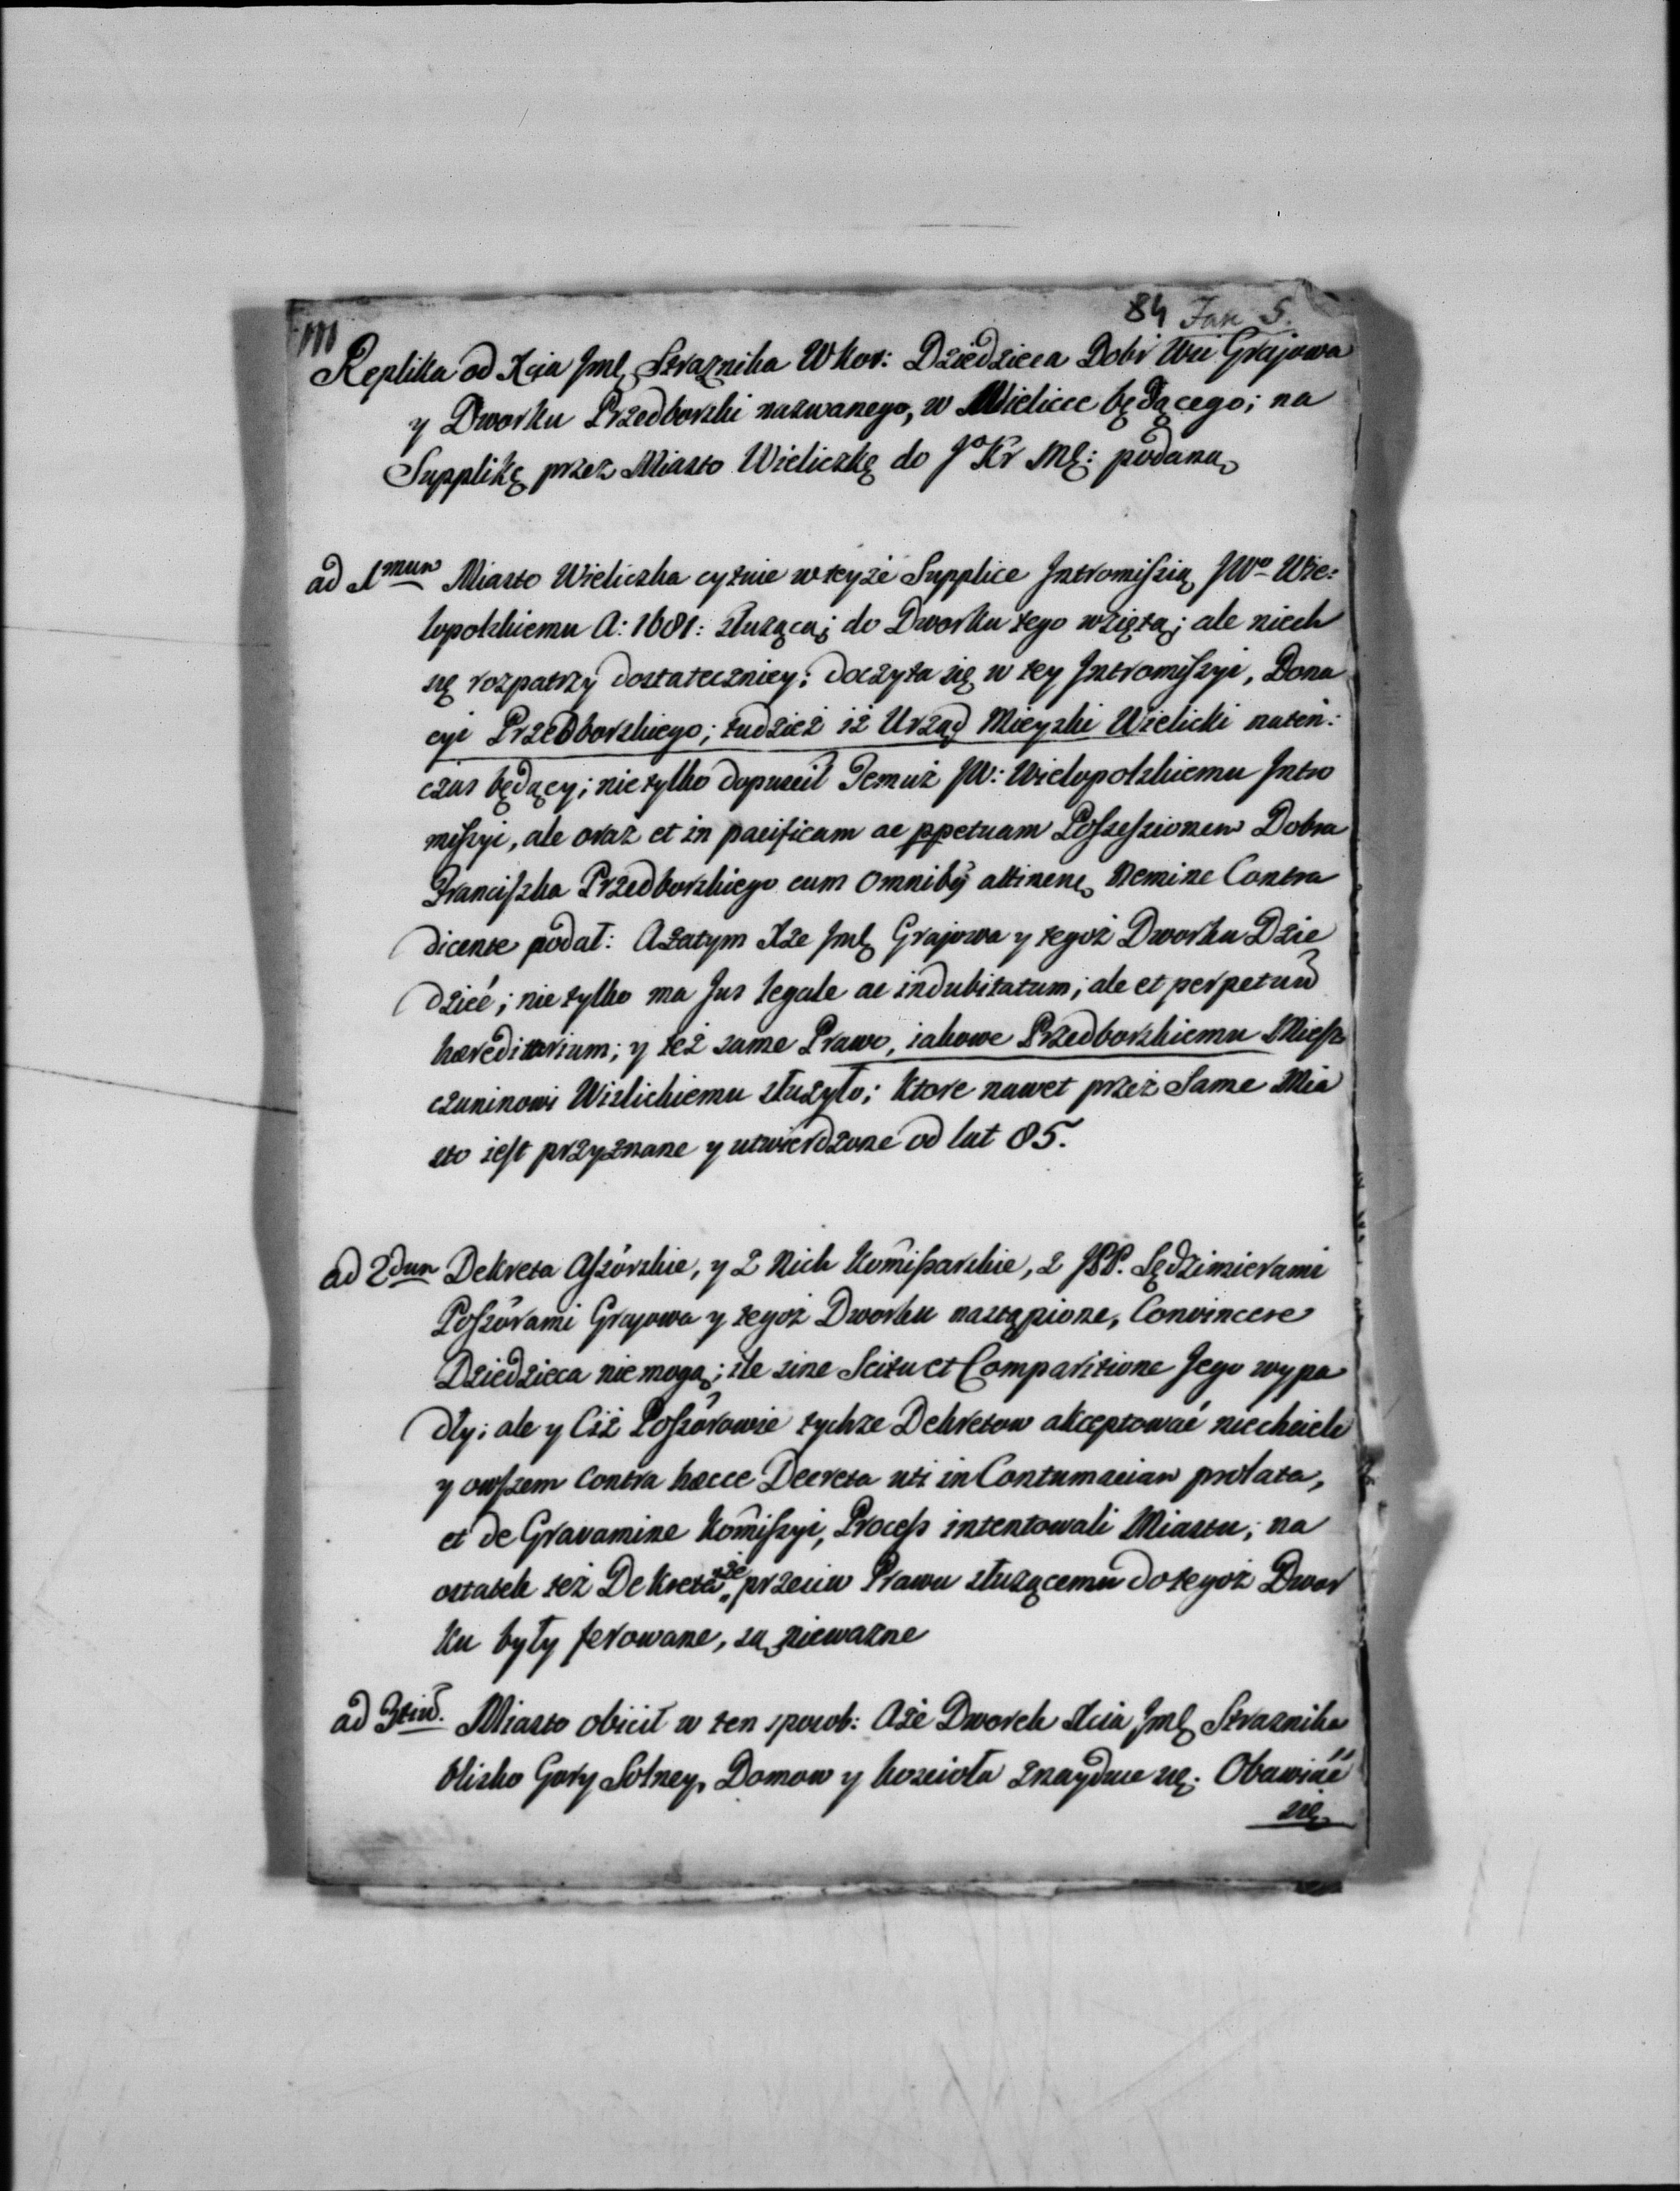 84 Fasc 5.
Replika od Xcia Jmł Straznika W Kor: Dziedzica Dobr Wsi Grajowa
y Dworku Przedborski nazwanego, w Wielicce będącego; na
Supplikę przez Miasto Wieliczkę do Jº Kr Mę: podaną
ad 1mum Miasto Wieliczka cytuie w teyże Supplice Intromissią JWº Wie:
lopolskiemu A: 1681: służącą; do Dworku tego wziętą; ale niech
się rozpatrzy dostateczniey; doczyta się w tey Intromissyi, Dona
cyi Przedborskiego; tudzież iż Urząd Mieyski Wielicki nateń:
czas będący; nie tylko dopuscił Temuż JW: Wielopolskiemu Intro
missyi, ale oraz et in pacificam ac ppetuam Possessionem Dobra
Franciszka Przedborskiego cum omnibꝰ attinenꝭ Nemine Contra
dicente podał: A zatym Xże Jmł Grajowa y tegoż Dworku Dzie
dzic; nie tylko ma Jus legale ac indubitatum; ale et perpetuũ
hæreditarium; y też same Prawo, iakowe Przedborskiemu Miesz
czaninowi Wielickiemu służyło; Ktore nawet przez Same Mia
sto iest przyznane y utwierdzone od lat 85.
ad 2dum Dekreta Assõrskie, y z Nich Kom̃issarskie, z JPP. Sędzimierami
Possõrami Grajowa y tegoż Dworku nastąpione, Convincere
Dziedzica nie mogą; ile sine Scitu et Comparitione Jego wypa
dły; ale y Ciż Possõrowie tychże Dekretow akceptować niechcieli
y owszem Contra hæcce Decreta uti in Contumaciam prolata,
et de Gravamine Kom̃issyi, Process intentowali Miastu; na
ostatek też Dekreta że przeciw Prawu służącemu do tegoż Dwor
ku były ferowane, są niewazne
ad 3tiũ. Miasto obiicit w ten sposob: Aże Dworek Xcia Jmł Straznika
blisko Gory Solney, Domow y kościoła znayduie się. Obawiać
się